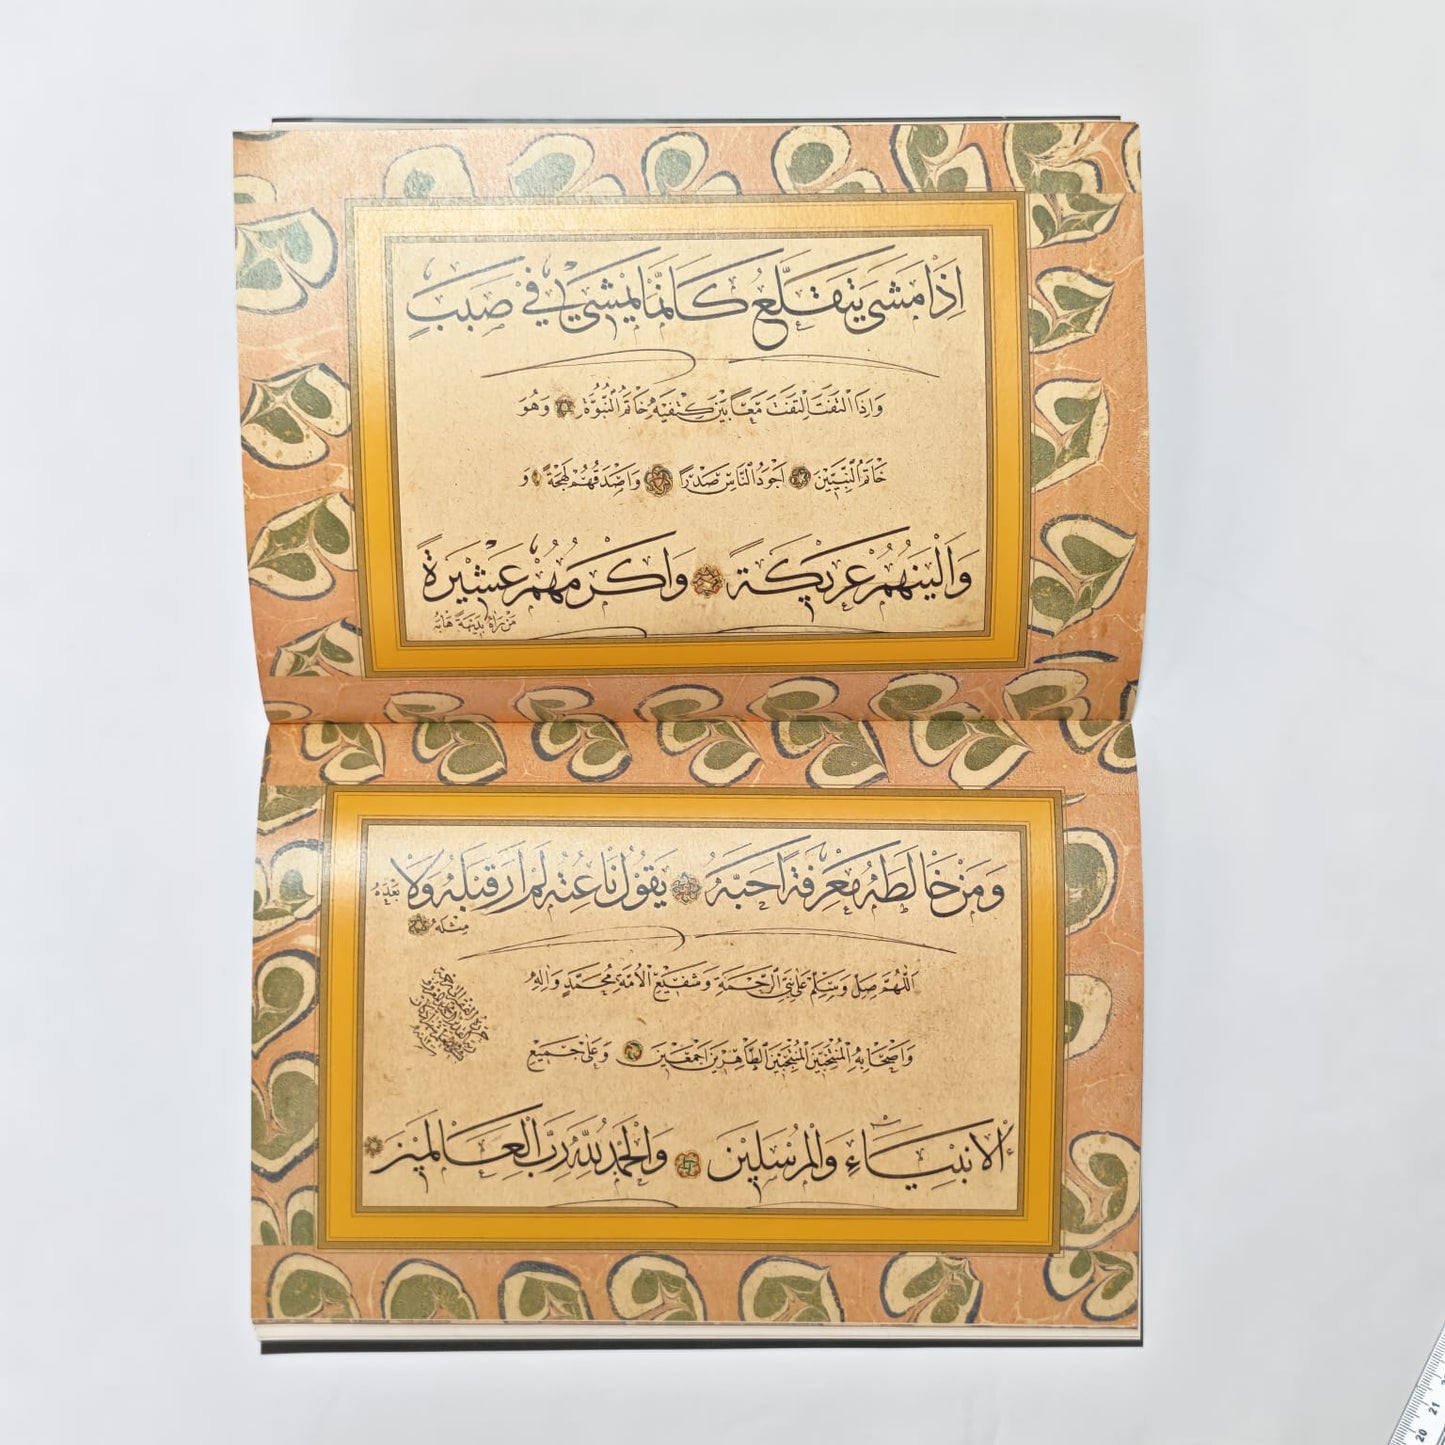 اِذَا مَشَى يَتَقَلَّعُ كَاَنَّمَا يَمْشِي فِي صَبَبٍ
وَاِذَا الْتَفَتَ الْتَفَتَ مَعًا بَيْنَ كَتِفَيْهِ خَاتَمُ النُّبُوَّةِ وَهُوَ
خَاتَمُ النَّبِيّٖنَ اَجْوَدُ النَّاسِ صَدْرًا وَاَصْدَقُهُمْ لَهْجَةً وَ
وَاَلْيَنُهُمْ عَرِيكَةً وَاَكْرَمُهُمْ عَشِيرَةً
مَنْ رَاٰهُ بَدِيهَةً هَابَهُ
وَمَنْ خَالَطَهُ مَعْرِفَةً اَحَبَّهُ يَقُولُ نَاعِتُهُ لَمْ اَرَ قَبْلَهُ وَلَا بَعْدَهُ
مِثْلَهُ
اَللّٰهُمَّ صَلِّ وَسَلِّمْ عَلٰى نَبِيِّ الرَّحْمَةِ وَشَفِيعِ الْاُمَّةِ مُحَمَّدٍ وَاٰلِهِ
وَاَصْحَابِهِ الْمُنْتَجَبِينَ الطَّاهِرِينَ اَجْمَعِينَ وَعَلٰى جَمِيعِ
الْاَنْبِيَاءِ وَالْمُرْسَلِينَ وَالْحَمْدُ لِلّٰهِ رَبِّ الْعَالَمِينَ
20 21